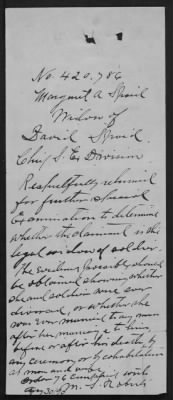 No. 420.786
Margaret A
Widow of
David
Chief S. E. Division
Respectfully returned
for further special
Examination to determine
whether the claimant is the
legal widow of soldier.
The Evidence possible should
be obtained showing whether
she and soldier were ever
divorced, or whether she
was Ever married to any man
after her marriage to him,
before or after his death, by
any ceremony or by cohabitation
as man and wife.